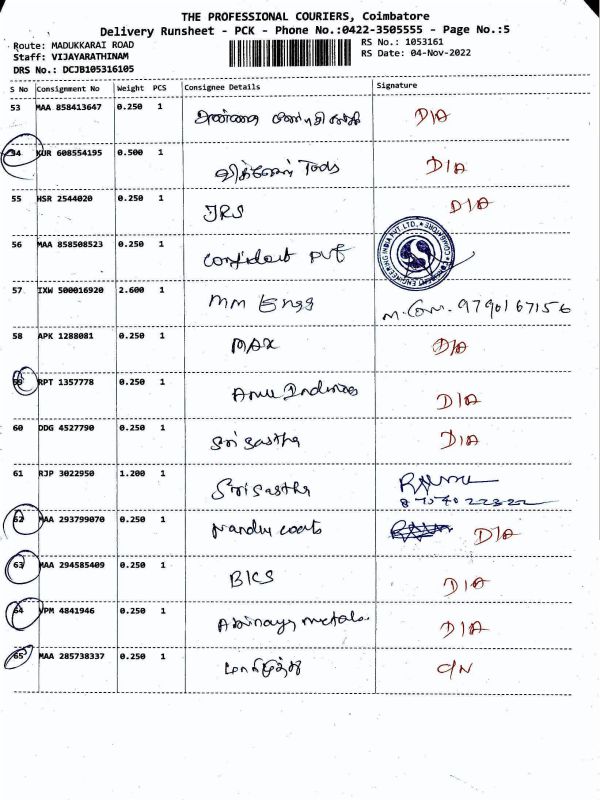 THE PROFESSIONAL COURIERS, Coimbatore
Delivery Runsheet - PCK - Phone No.:0422-3505555 - Page No.:5
Route: MADUKKARAI ROAD RS No.: 1053161
Staff: VIJAYARATHINAM RS Date: 04-Nov-2022
DRS No.: DCJB105316105
S No Consignment No Weight PCS Consignee Details Signature
53 MAA 858413647 0.250 1 D/A
54 KUR 608554195 0.500 1 Tools D/A
55 HSR 2544020 0.250 1 JRS D/A
56 MAA 858508523 0.250 1 Confident Pvt
57 IXW 500016920 2.600 1 MM Engg M.Com. 9790167156
58 APK 1288081 0.250 1 MAX D/A
59 RPT 1357778 0.250 1 D/A
60 DDG 4527790 0.250 1 Sri Sastha D/A
61 RJP 3022950 1.200 1 Sri Sastha
8754022322
62 MAA 293799070 0.250 1 D/A
63 MAA 294585409 0.250 1 BICS D/A
64 VPM 4841946 0.250 1 Abinaya metals D/A
65 MAA 285738337 0.250 1 C/N